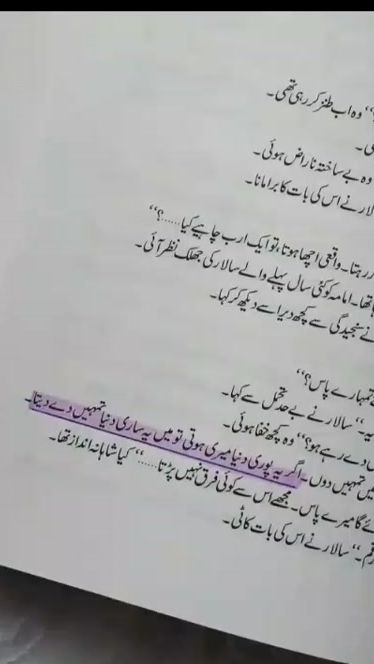 ؟“ وہ اب طنز کر رہی تھی۔
ی۔
وہ بے ساختہ ناراض ہوئی۔
لار نے اس کی بات کا برا مانا۔
ر رہتا۔ واقعی اچھا ہوتا، تو ایک ارب چاہیے کیا.....؟“
تھا۔ امامہ کو کئی سال پہلے والے سالار کی جھلک نظر آئی۔
نے سنجیدگی سے کچھ دیر اسے دیکھ کر کہا۔
تمہارے پاس؟“
یہ۔“ سالار نے بے حد تحمل سے کہا۔
دے رہے ہو؟“ وہ کچھ خفا ہوئی۔
میں تمہیں دوں۔ اگر یہ پوری دنیا میری ہوتی تو میں یہ ساری دنیا تمہیں دے دیتا۔
ئے گا میرے پاس۔ مجھے اس سے کوئی فرق نہیں پڑتا.....“ کیا شاہانہ انداز تھا۔
قم۔“ سالار نے اس کی بات کاٹی۔